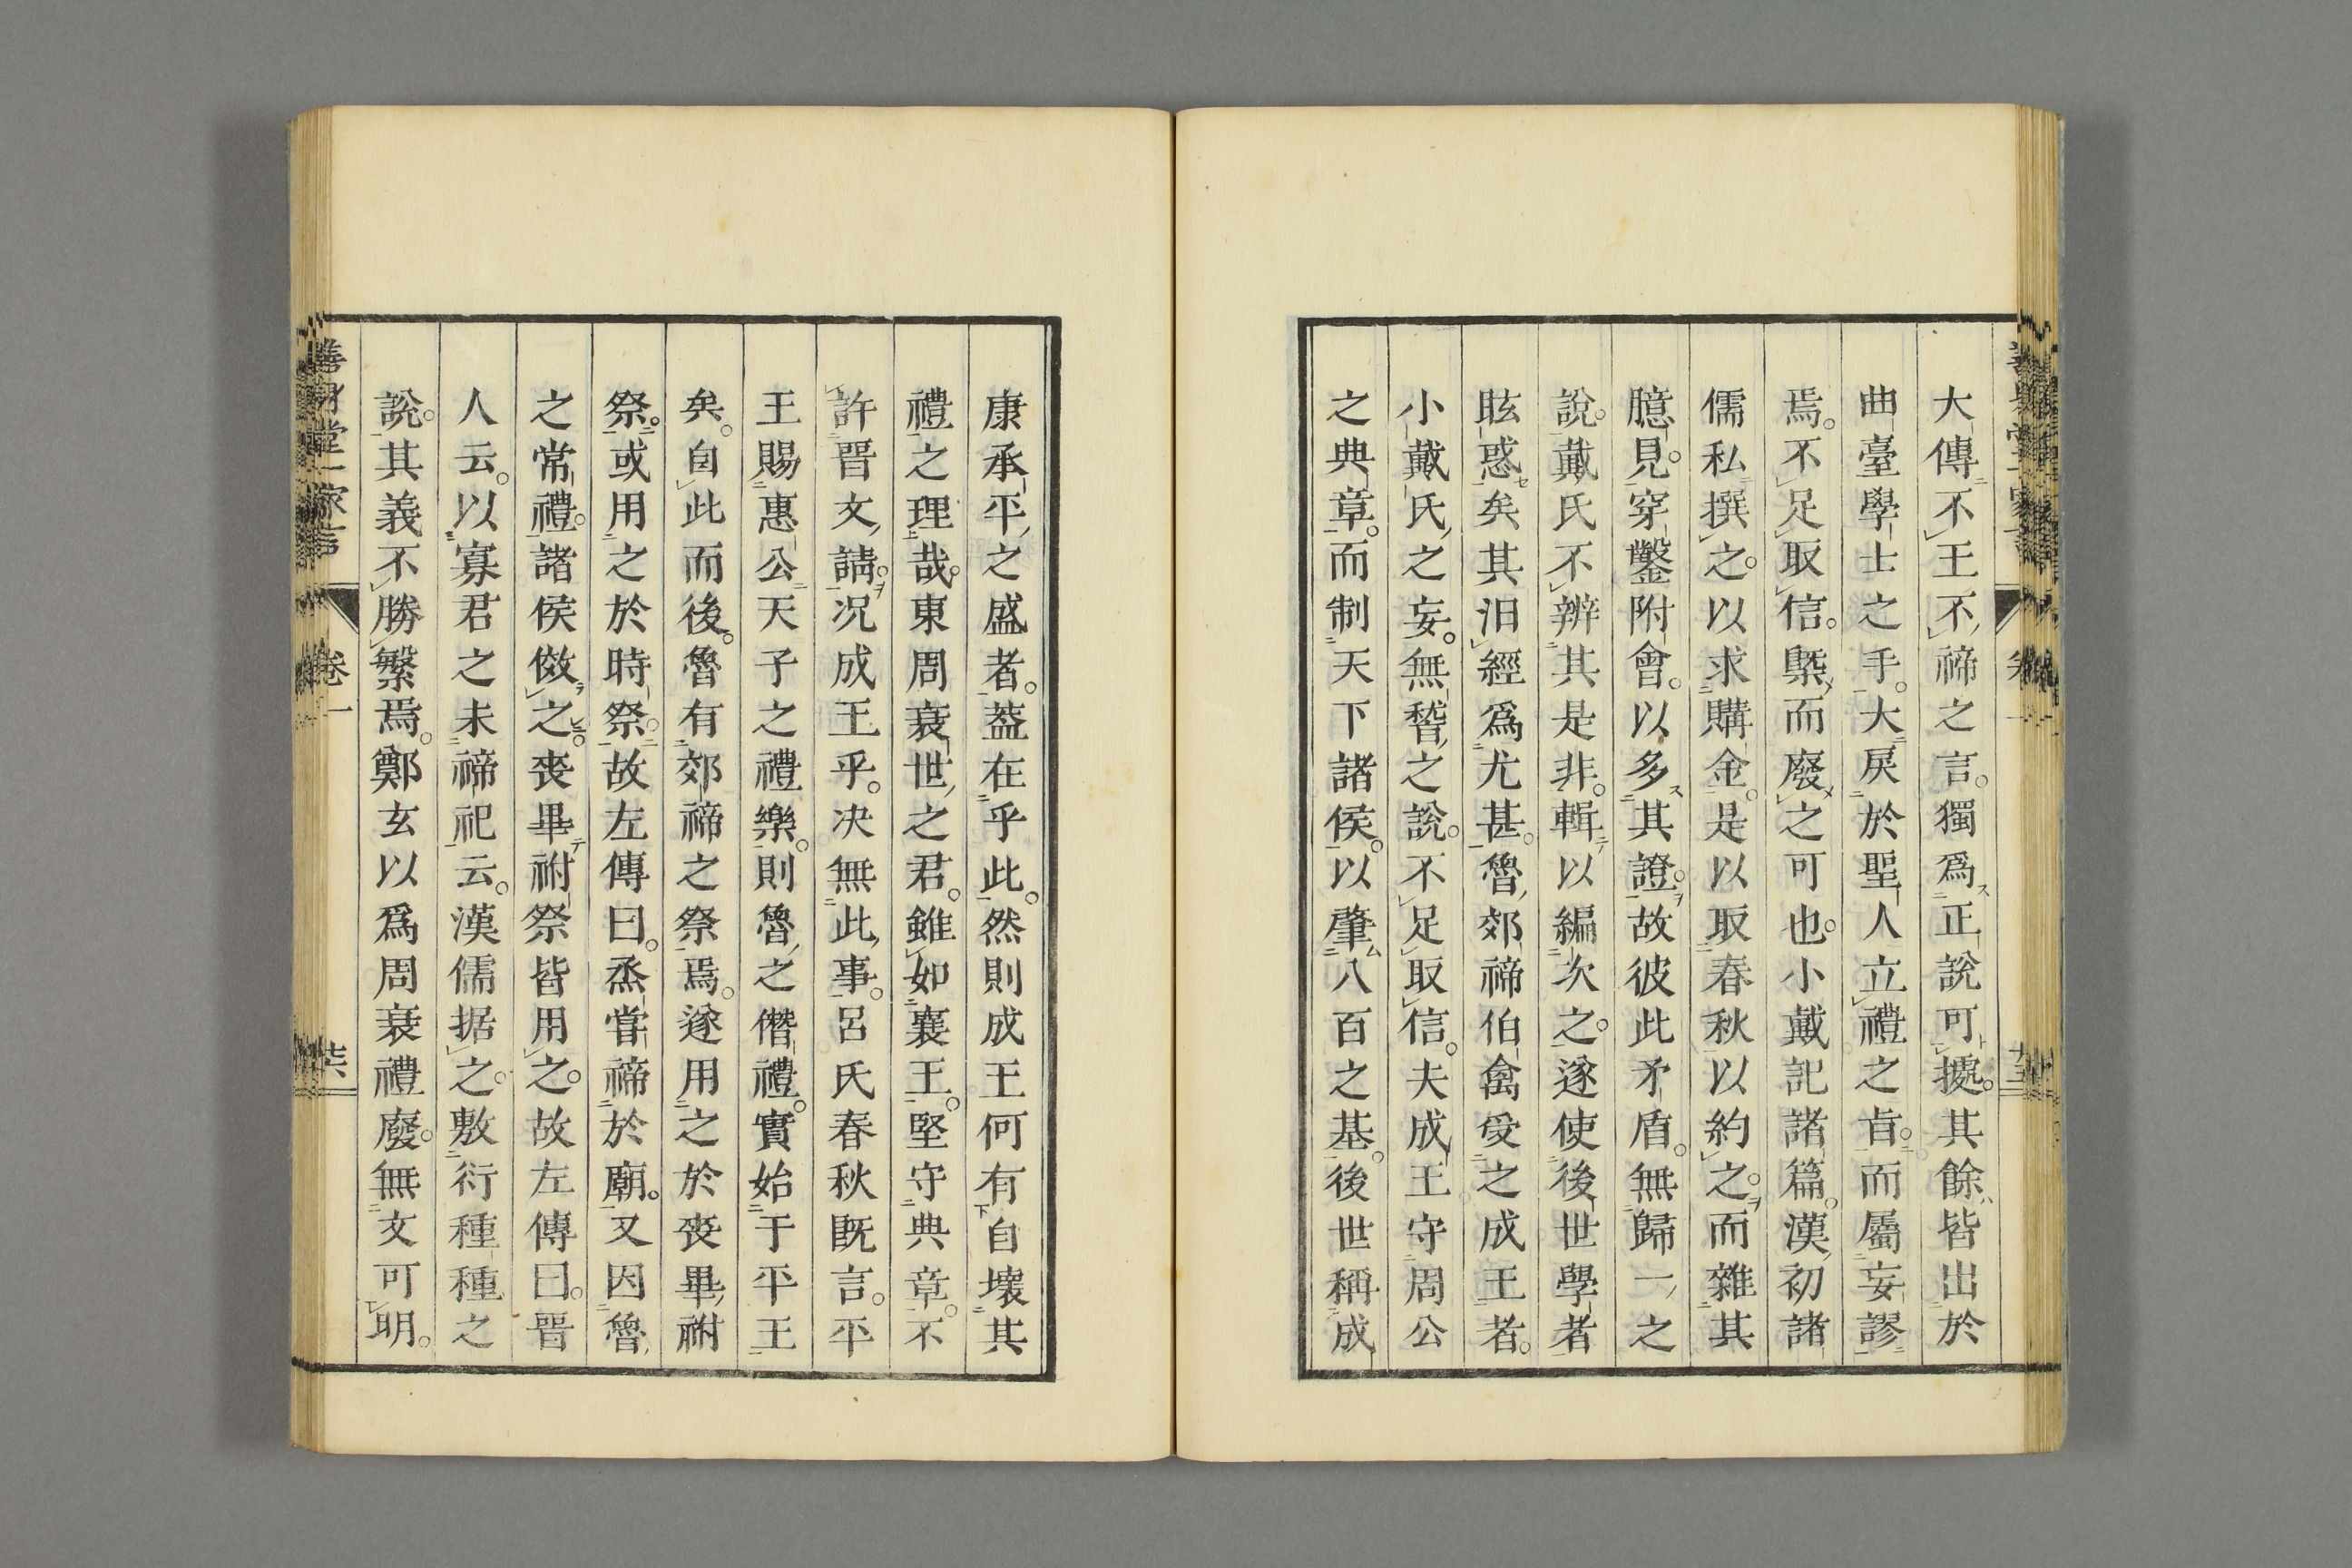 大傳不王不禘之言。獨爲正說可據。其餘皆出於
曲臺學士之手。大戾於聖人立禮之旨。而屬妄謬
焉。不足取信。槩而廢之可也。小戴記諸篇。漢初諸
儒私撰之。以求購金。是以取春秋以約之。而雜其
臆見。穿鑿附會。以多其證。故彼此矛盾。無歸一之
說。戴氏不辨其是非。輯以編次之。遂使後世學者
眩惑矣其汨經爲尤甚。魯郊禘伯禽受之成王者。
小戴氏之妄。無稽之說。不足取信。夫成王守周公
之典章。而制天下諸侯。以肇八百之基。後世稱成
康承平之盛者。葢在乎此。然則成王何有自壞其
禮之理哉。東周衰世之君。雖如襄王。堅守典章。不
許晉文請。况成王乎。决無此事。呂氏春秋既言。平
王賜惠公天子之禮樂。則魯之僭禮。實始于平王
矣。自此而後。魯有郊禘之祭焉。遂用之於喪畢祔
祭。或用之於時祭。故左傳曰。烝嘗禘於廟。又因魯
之常禮。諸侯傚之。喪畢祔祭皆用之。故左傳曰。晉
人云。以寡君之未禘祀云。漢儒据之。敷衍種種之
說。其義不勝繁焉。鄭玄以爲周衰禮廢。無文可明。
善身堂一家言
卷一